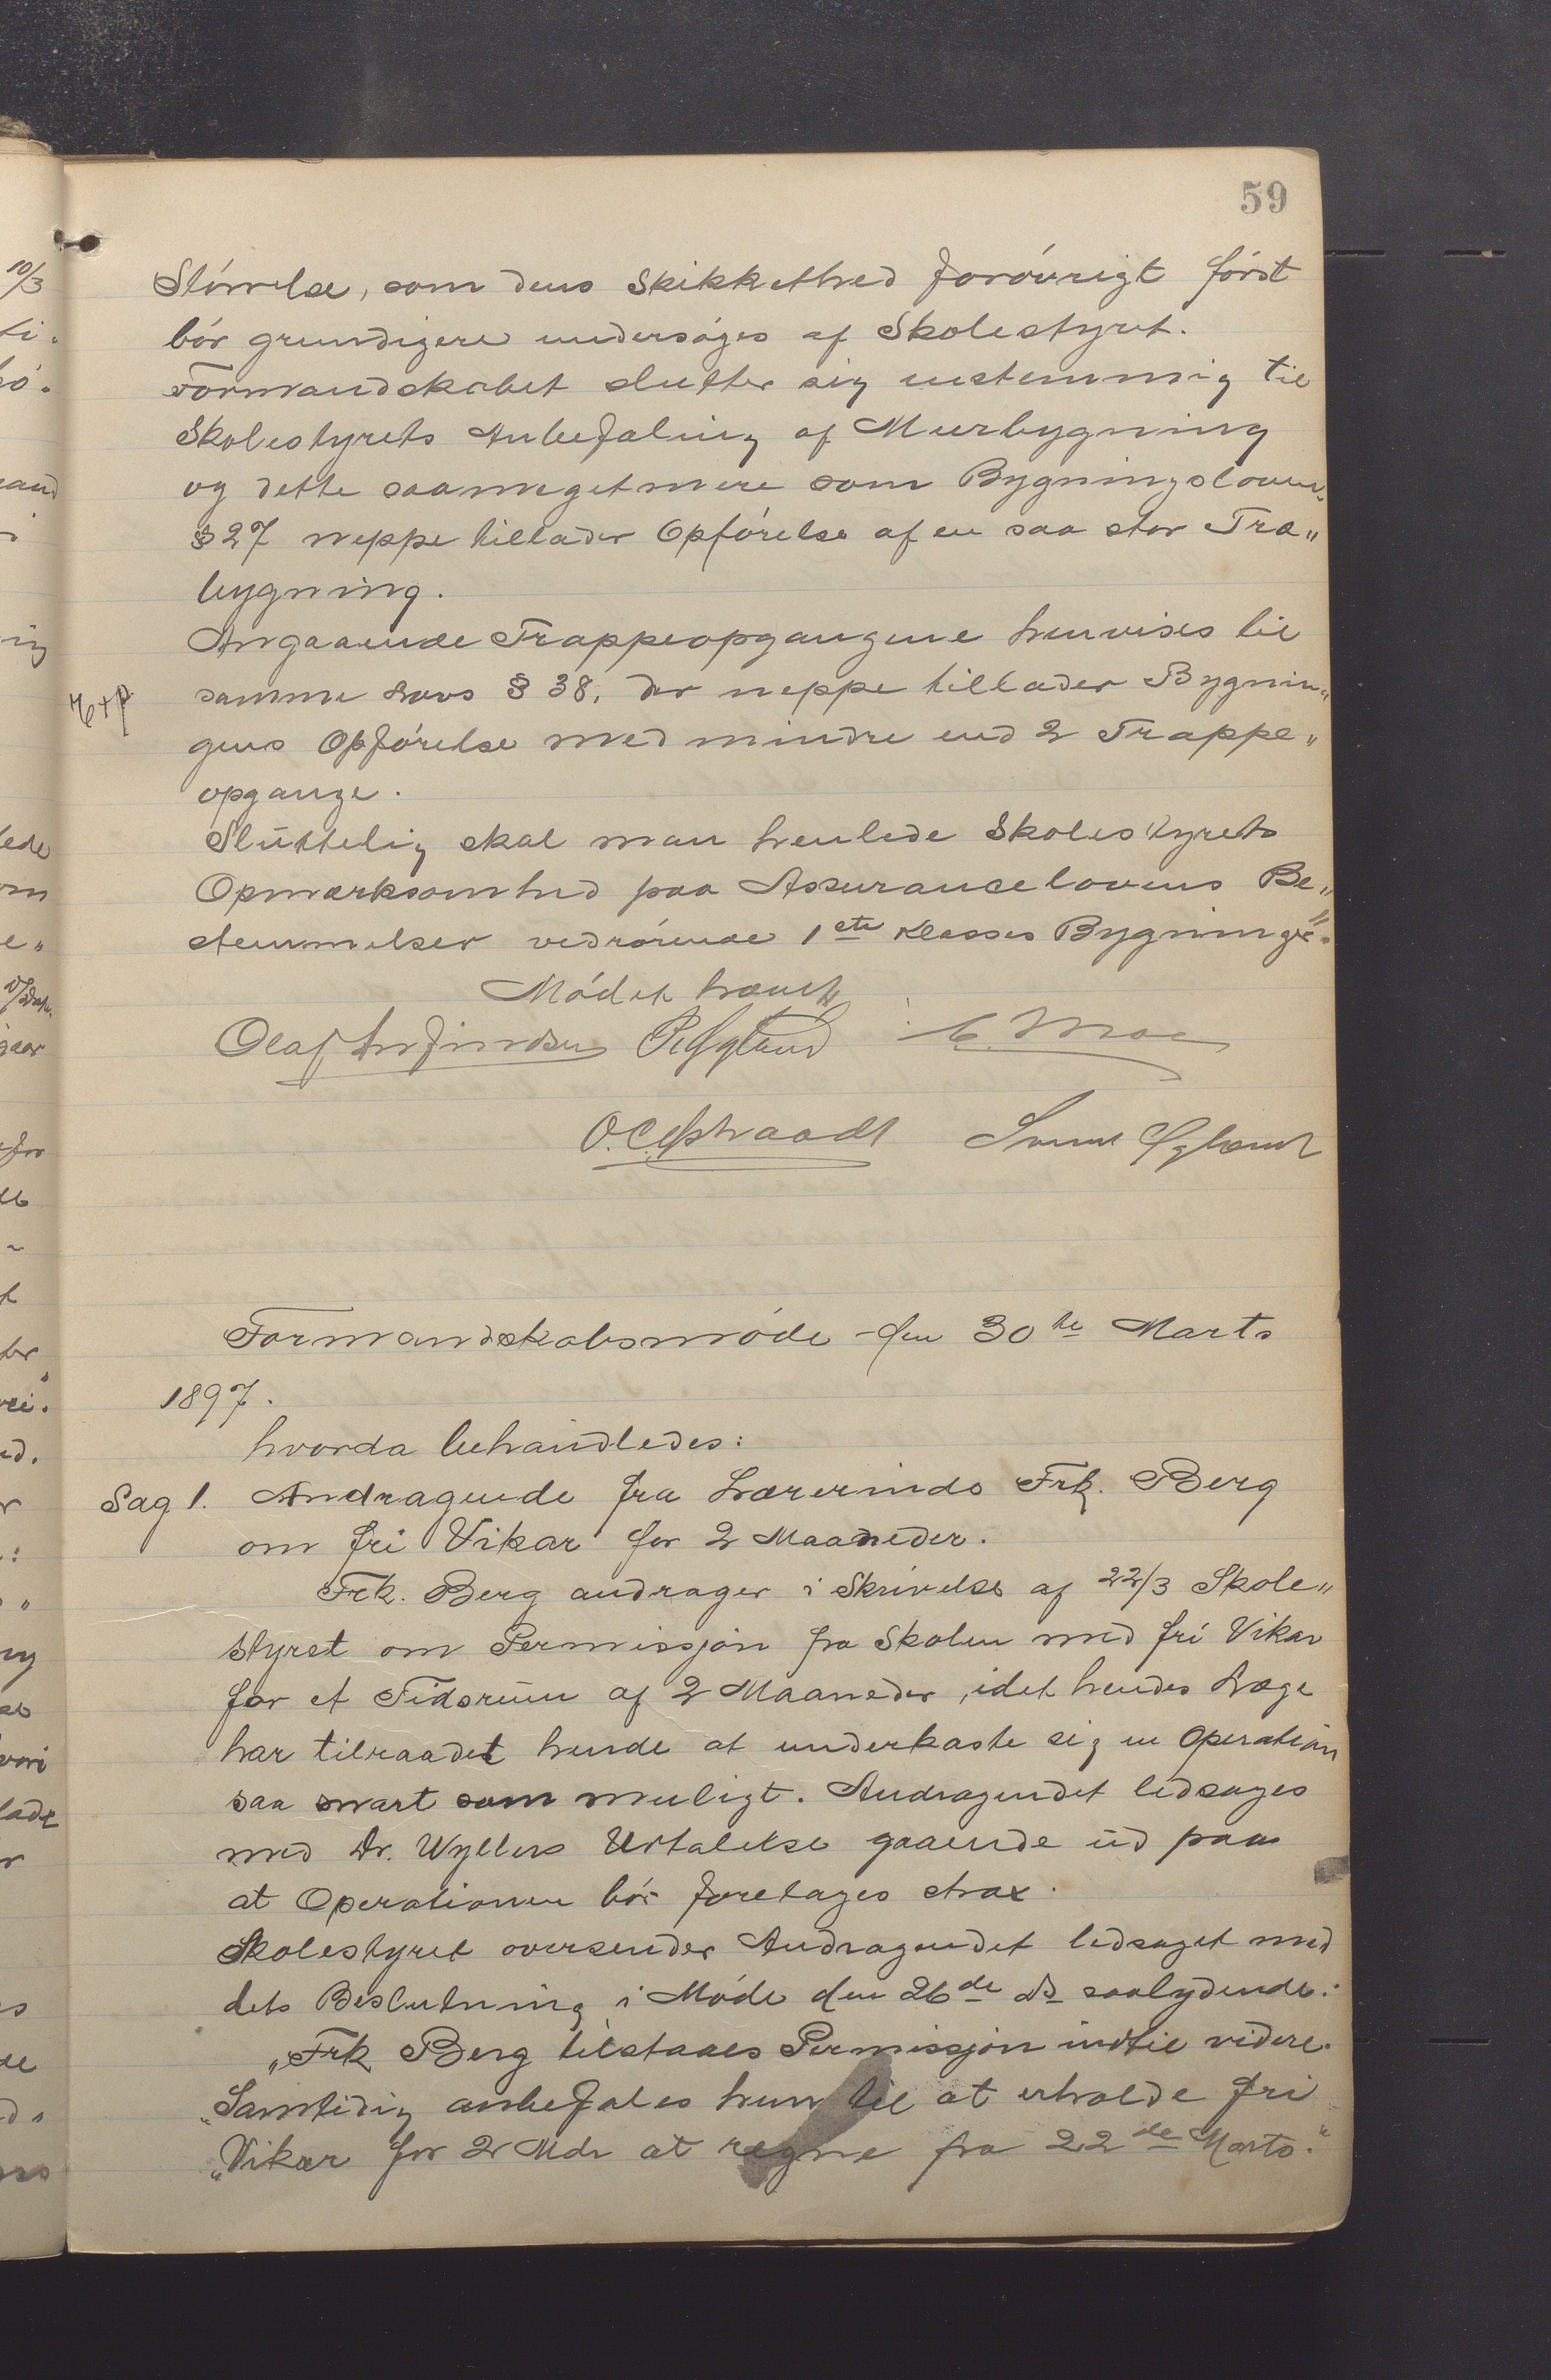 59
Störrelse, som dens Skikkethed forövrigt först
bör grundigere undersöges af Skolestyret.
Formandskabet slutter sig enstemmig til
Skolestyrets Anbefaling af Muurbygning
og dette saameget mere som Bygningsloven.
§ 27 neppe tillader Opförelse af en saa stor Træ„
bygning.
Angaaende Trappeopgangene henvises til
samme Lovs § 38, der neppe tillader Bygnin„
gens Opförelse med mindre end 2 Trappe„
opgange.
Sluttelig skal man henlede Skolestyrets
Opmærksomhed paa Assurancelovens Be„
stemmelser vedrörende 1ste Klasses Bygninger.
Mödet hævet
Olaf Arfindsen
C. Moe
Formandskabsmöde den 30te Marts
1897.
hvorda behandledes:
Sag 1. Andragende fra Lærerinde Frk. Berg
om fri Vikar for 2 Maaneder.
Frk. Berg andrager i Skrivelse af 22/3 Skole„
styret om Permissjon fra Skolen med fri Vikar
for et Tidsrum af 2 Maaneder, idet hendes Læge
har tilraadet hende at underkaste sig en Operation
saa snart som muligt. Andragendet ledsages
med Dr. Wyllers Udtalelse gaaende ud paa
at Operationen bör foretages strax.
Skolestyret oversender Andragendet ledsaget med
dets Beslutning i Möde den 26de ds saalydende:
„Frk Berg tilstaaes Permissjon indtil videre.
„Samtidig anbefales hun til at erholde fri
„Vikar for 2 Mdr at regne fra 22de Marts."